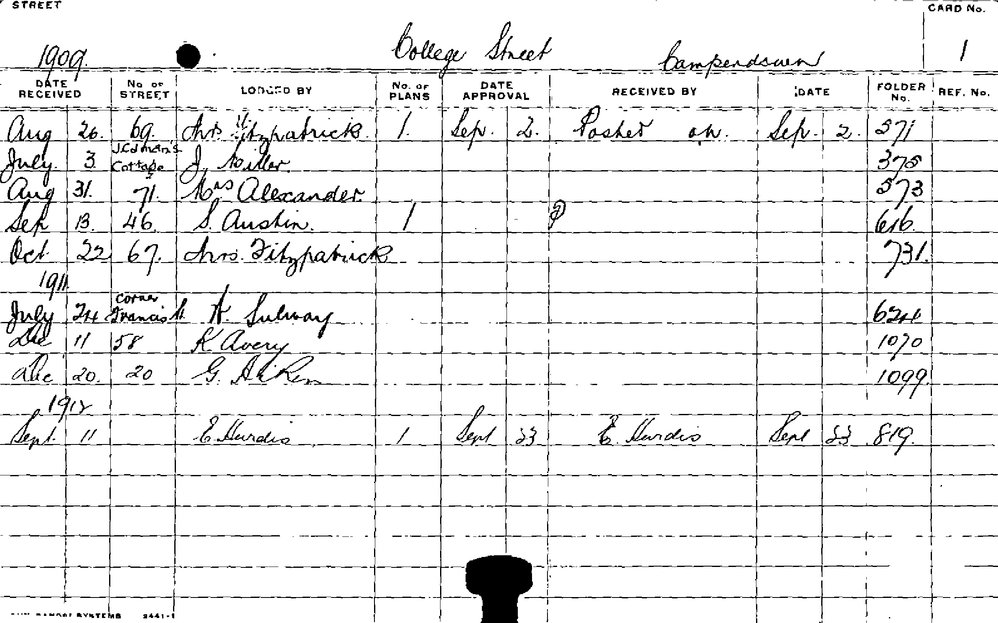 STREET
CARD No.
1909. College Street Camperdown 1
DATE RECEIVED No. OF STREET LODGED BY No. OF PLANS DATE APPROVAL RECEIVED BY DATE FOLDER No. REF. No.
Aug 26. 69. Mrs. Fitzpatrick. 1. Sep. 2. Posted on. Sep. 2. 571
July. 3 Cottage J. Miller. 375
Aug 31. 71. Mrs Alexander. 573
Sep 13. 46. S. Austin. 1 616.
Oct. 22 67. Mrs. Fitzpatrick 731.
1911
July 24 Corner Francis St. A. Sulway 624
Dec 11 58 K Avery 1070
Dec 20. 20 G. Aiken 1099
1912
Sept. 11 E Hurdis 1 Sept 23 E. Hurdis Sept 23 819.
SYSTEMS 3441-1